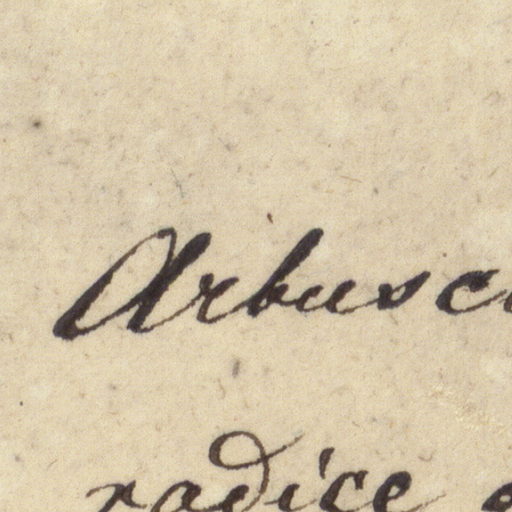 Arbusc
radice